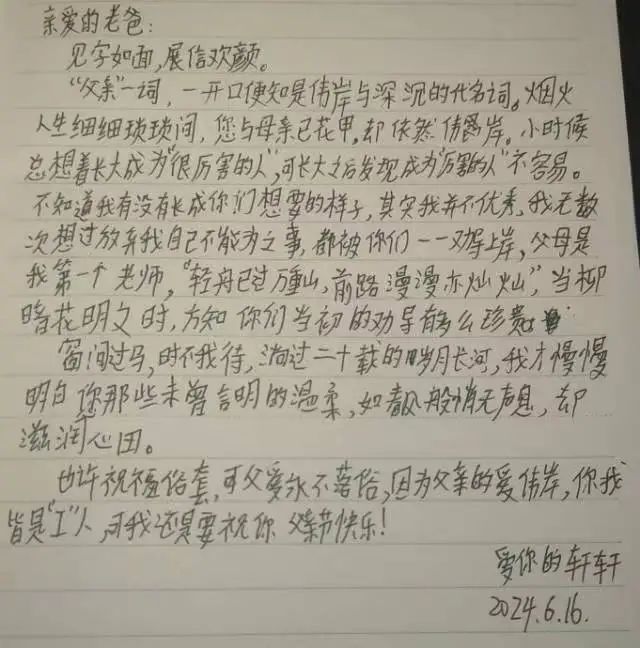 亲爱的老爸：
见字如面，展信欢颜。
“父亲”一词，一开口便知是伟岸与深沉的代名词。烟火
人生细细琐琐间，您与母亲已花甲，却依然伟岸。小时候
总想着长大成为“很厉害的人”，可长大之后发现成为“厉害的人”不容易。
不知道我有没有长成你们想要的样子，其实我并不优秀，我无数
次想过放弃我自己不能为之事，都被你们一一劝导上岸，父母是
我第一个老师，“轻舟已过万重山，前路漫漫亦灿灿”，当柳
暗花明之时，方知你们当初的劝导有多么珍贵
窗间过马，时不我待，淌过二十载的岁月长河，我才慢慢
明白您那些未曾言明的温柔，如春风般悄无声息，却
滋润心田。
也许祝福俗套，可父爱永不落俗，因为父亲的爱伟岸，你我
皆是“工”人，可我还是要祝你父亲节快乐！
爱你的轩轩
2024.6.16.